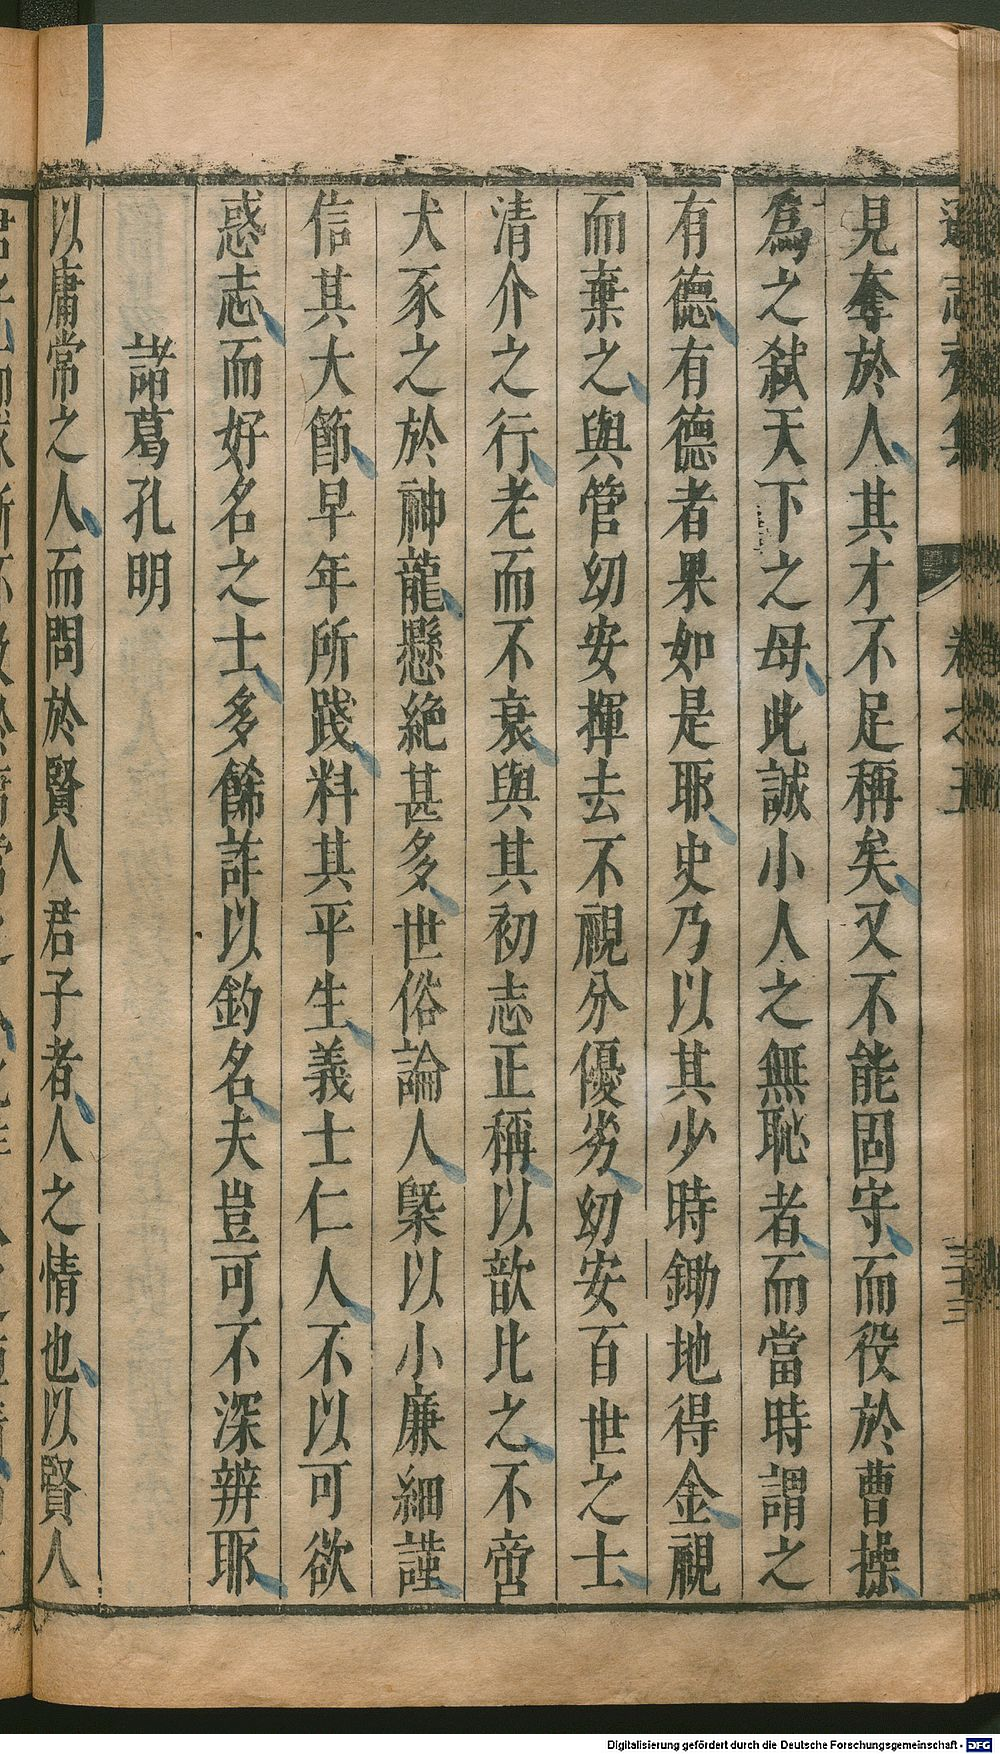 見奪於人其才不足稱矣又不能固守而役於曹操
爲之弑天下之母此誠小人之無恥者而當時謂之
有德有德者果如是耶史乃以其少時鋤地得金視
而棄之與管幼安揮去不視分優劣幼安百世之士
清介之行老而不衰與其初志正稱以歆比之不啻
犬豕之於神龍懸絶甚多世俗論人槩以小廉細謹
信其大節早年所踐料其平生義士仁人不以可欲
惑志而好名之士多餙詐以釣名夫豈可不深辨耶
諸葛孔明
以庸常之人而問於賢人君子者人之情也以賢人
卷之五
三十三
Digitalisierung gefördert durch die Deutsche Forschungsgemeinschaft - DFG